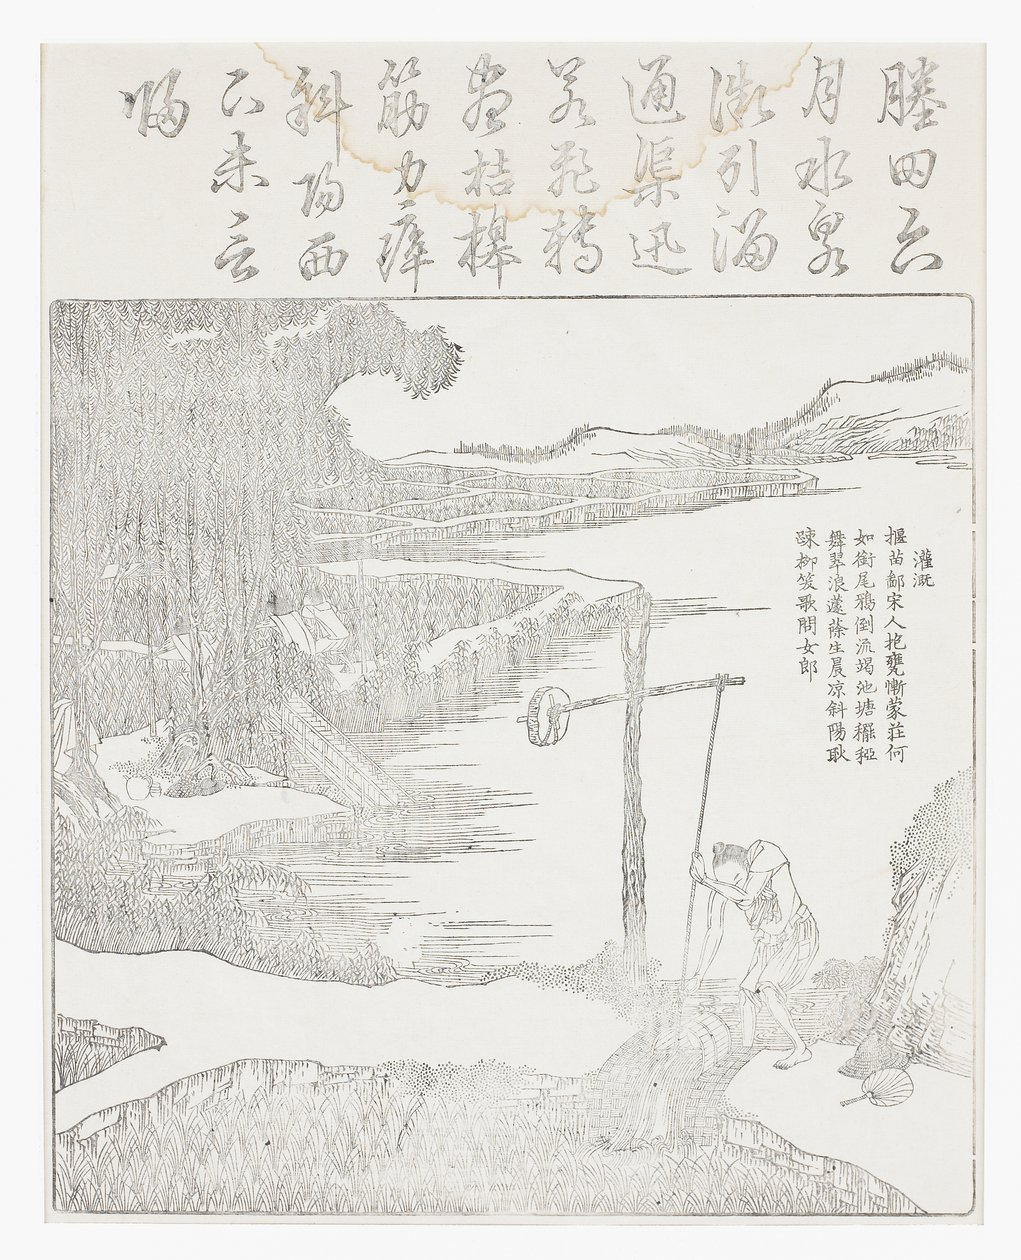 塍田六
月水泉
微引溜
通渠迅
若飛轉
盡桔槔
筋力瘁
斜陽西
下未言
歸
灌溉
揠苗鄙宋人抱甕慚蒙莊何
如銜尾鴉倒流竭池塘䆉稏
舞翠浪籧篨生晨凉斜陽耿
疎柳笑歌問女郎